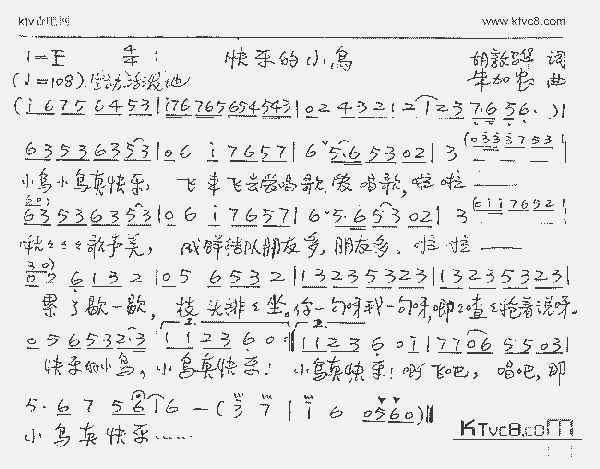 ktv吉吧网 www.ktvc8.com
快乐的小鸟
词
(♩=108) 生动活泼地 曲
(i̇ 6 7 5 6 4 5 3 | i̇ 7 6 7 6 5 6 5 4 5 4 3 | 0 2 4 3 2 1 2 1 2 3 7 6 5 6 · )|
6 3 5 3 6 3 5 3 | 0 6 i̇ 7 6 5 7 | 6 5·6 5 3 0 2 | 3 (0 3 3 3 7 5 3 |
小鸟小鸟真快乐, 飞来飞去爱唱歌,爱唱歌,啦啦——
6 3 5 3 6 3 5 3 | 0 6 i̇ 7 6 5 7 | 6·5·6 5 3 0 2 | 3 (6 i̇ i̇ 7 6 5 2 |
歌声美, 成群结队朋友多,朋友多,啦啦——
6 1 3 2 | 0 5 6 5 3 2 | 1 3 2 3 5 3 2 3 | 1 3 2 3 5 3 2 3 |
累了歇一歇, 枝头排排坐。你一句呀我一句呀,唧唧喳喳抢着说呀。
0 5 6 5 3 2·3 | 1 1 2 3 6 0 :‖ 1 1 2 3 6 0 i̇ | 7 7 0 6 5 5 0 3 |
快乐的小鸟,小鸟真快乐! 小鸟真快乐!啊飞吧,唱吧,那
5· 6 7 5 6 6 – (3 7 | i̇ 6 0 5 6 0)‖
小鸟真快乐……
KTvc8.com